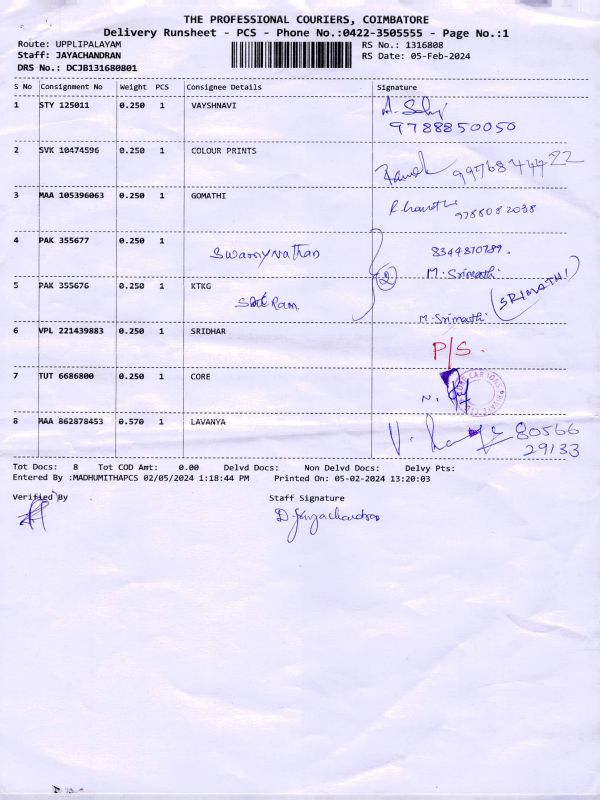 THE PROFESSIONAL COURIERS, COIMBATORE
Delivery Runsheet - PCS - Phone No.:0422-3505555 - Page No.:1
Route: UPPLIPALAYAM RS No.: 1316808
Staff: JAYACHANDRAN RS Date: 05-Feb-2024
DRS No.: DCJB131680801
S No Consignment No Weight PCS Consignee Details Signature
1 STY 125011 0.250 1 VAYSHNAVI
9788850050
2 SVK 10474596 0.250 1 COLOUR PRINTS
3 MAA 105396063 0.250 1 GOMATHI
9788082038
4 PAK 355677 0.250 1 Swamynathan 8344870789.
2 M. Srimathi
5 PAK 355676 0.250 1 KTKG (SRIMATHI)
Ram M. Srimathi
6 VPL 221439883 0.250 1 SRIDHAR
P/S.
7 TUT 6686800 0.250 1 CORE
N.
8 MAA 862878453 0.570 1 LAVANYA 80566
29133
Tot Docs: 8 Tot COD Amt: 0.00 Delvd Docs: Non Delvd Docs: Delvy Pts:
Entered By :MADHUMITHAPCS 02/05/2024 1:18:44 PM Printed On: 05-02-2024 13:20:03
Verified By Staff Signature
D. Jayachandran